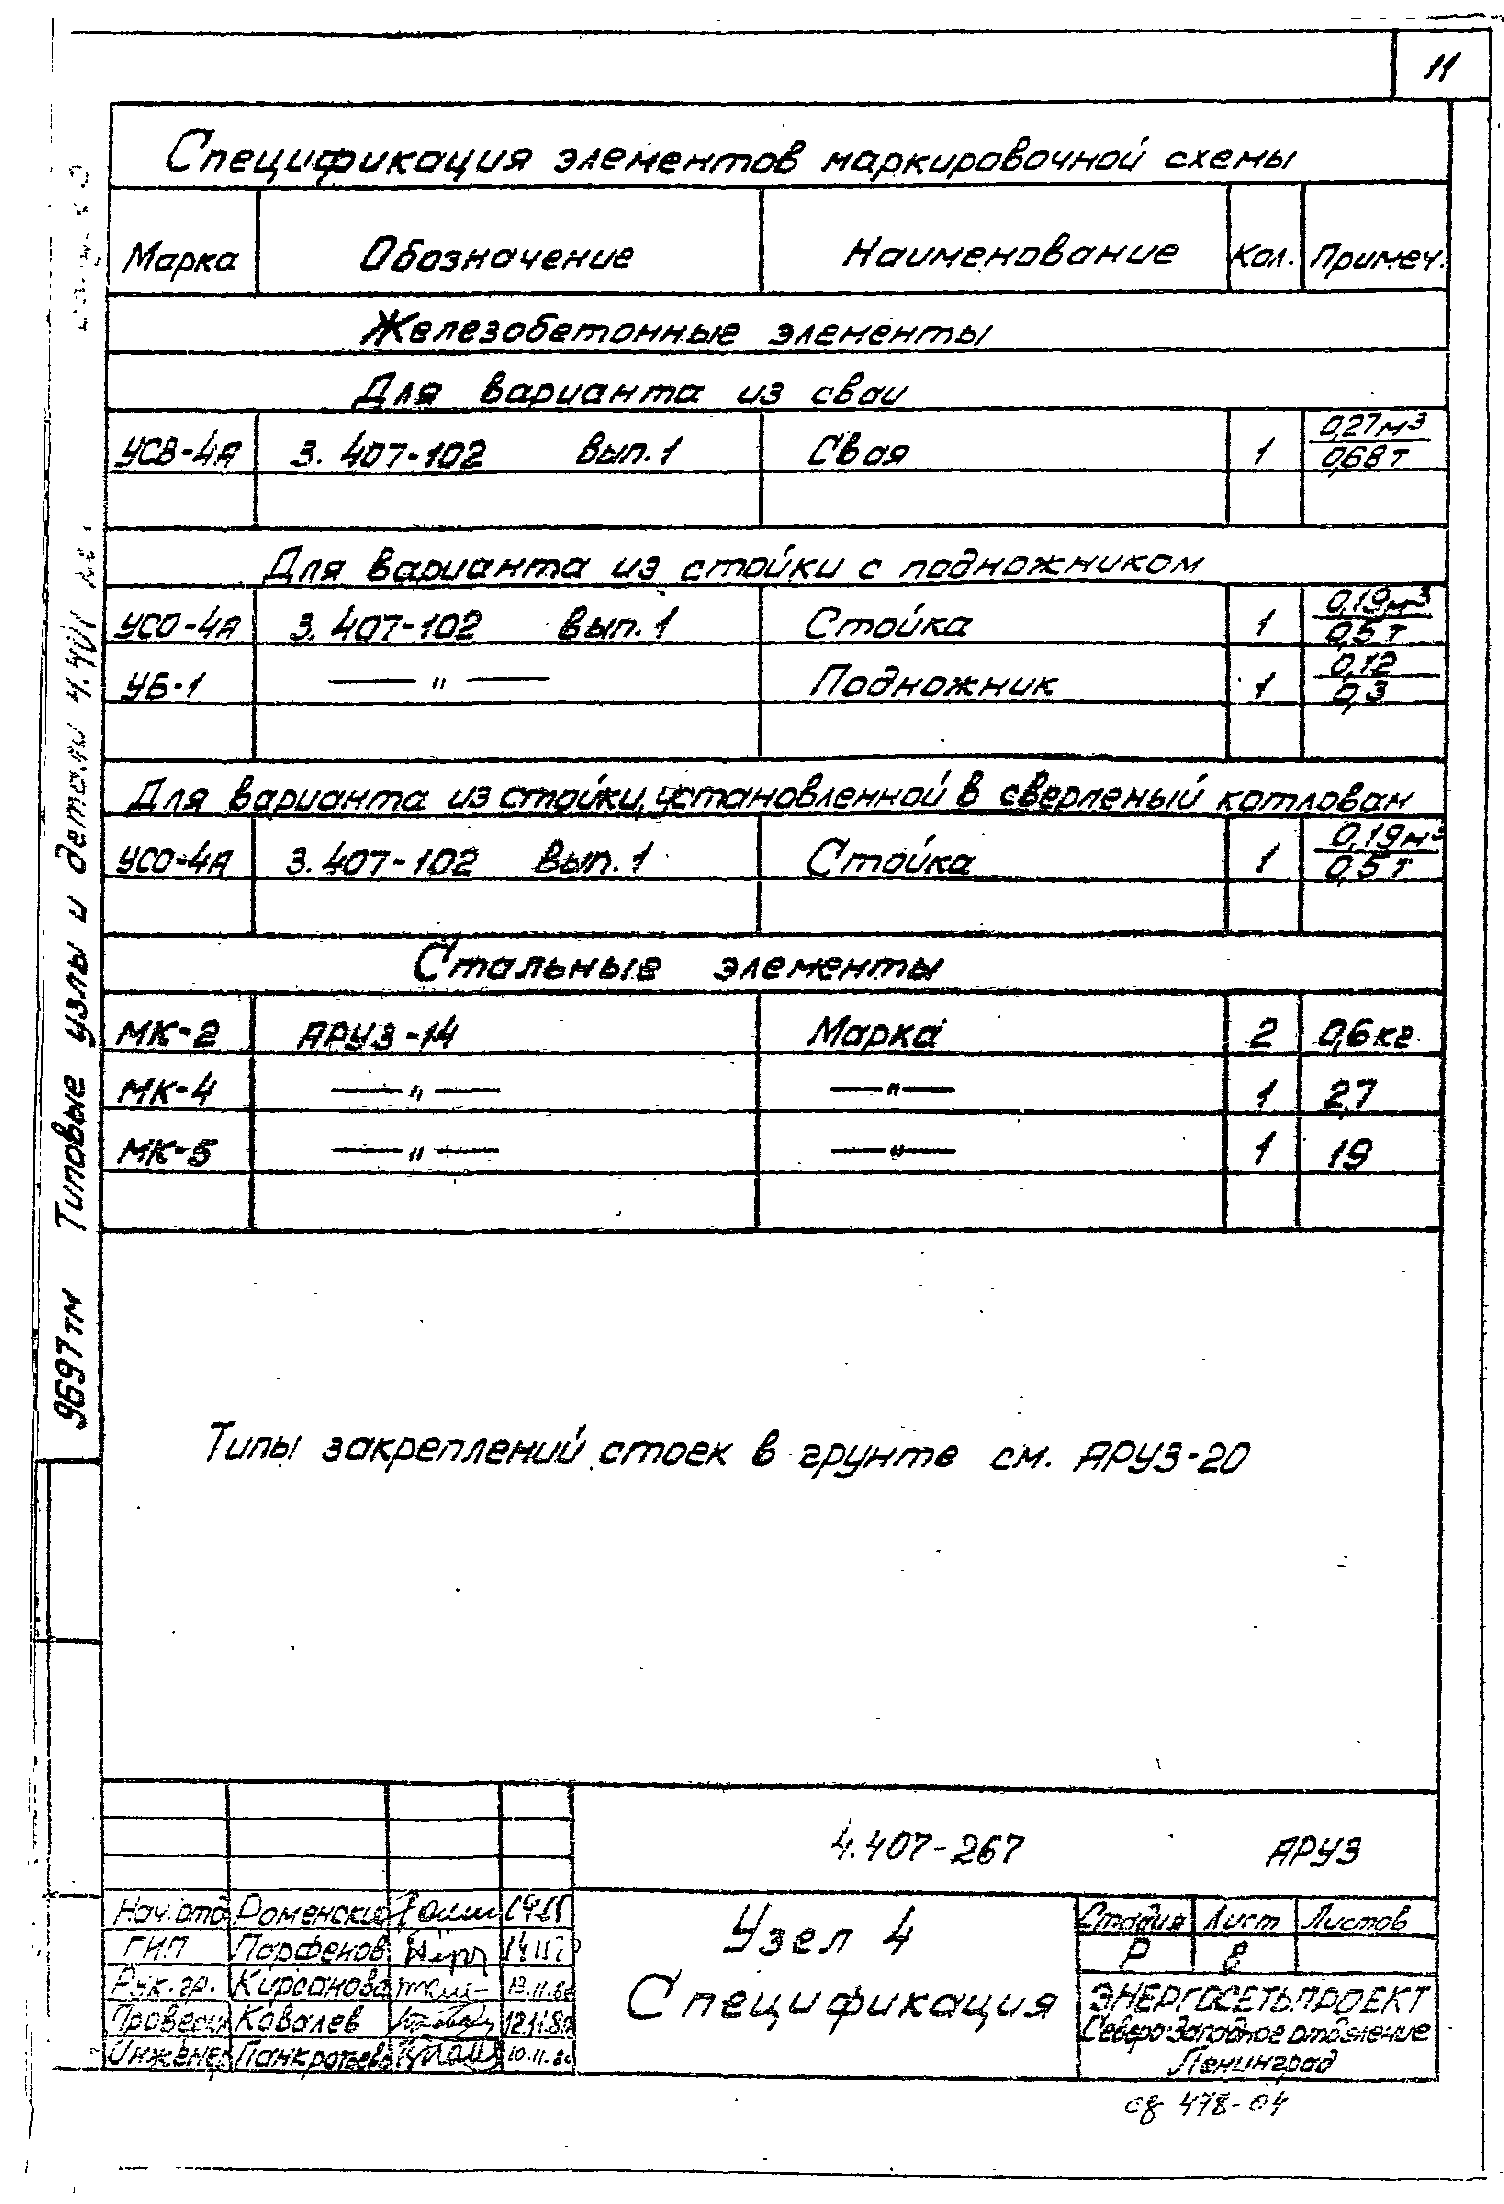 11
Спецификация элементов маркировочной схемы
Марка Обозначение Наименование Кол. Примеч.
Железобетонные элементы
Для варианта из сваи
УСВ-4А 3.407-102 Вып.1 Свая 1 0,27м³/0,68т
Для варианта из стойки с подножником
УСО-4А 3.407-102 Вып.1 Стойка 1 0,19м³/0,5т
УБ-1 —〃— Подножник 1 0,12/0,3
Для варианта из стойки, установленной в сверленый котлован
УСО-4А 3.407-102 Вып.1 Стойка 1 0,19м³/0,5т
Стальные элементы
МК-2 АРУЗ-14 Марка 2 0,6кг
МК-4 —〃— —〃— 1 27
МК-5 —〃— —〃— 1 19
Типы закреплений стоек в грунте см. АРУЗ-20
9697тм Типовые узлы и детали
4.407-267 АРУЗ
Нач. отд Роменский
ГИП Парфенов
Рук. гр. Кирсанова
Провери Ковалев 12.11.80
Инженер Панкратьева 10.11.80
Узел 4
Спецификация
Стадия Лист Листов
Р 8
ЭНЕРГОСЕТЬПРОЕКТ
Северо-Западное отделение
Ленинград
478-04